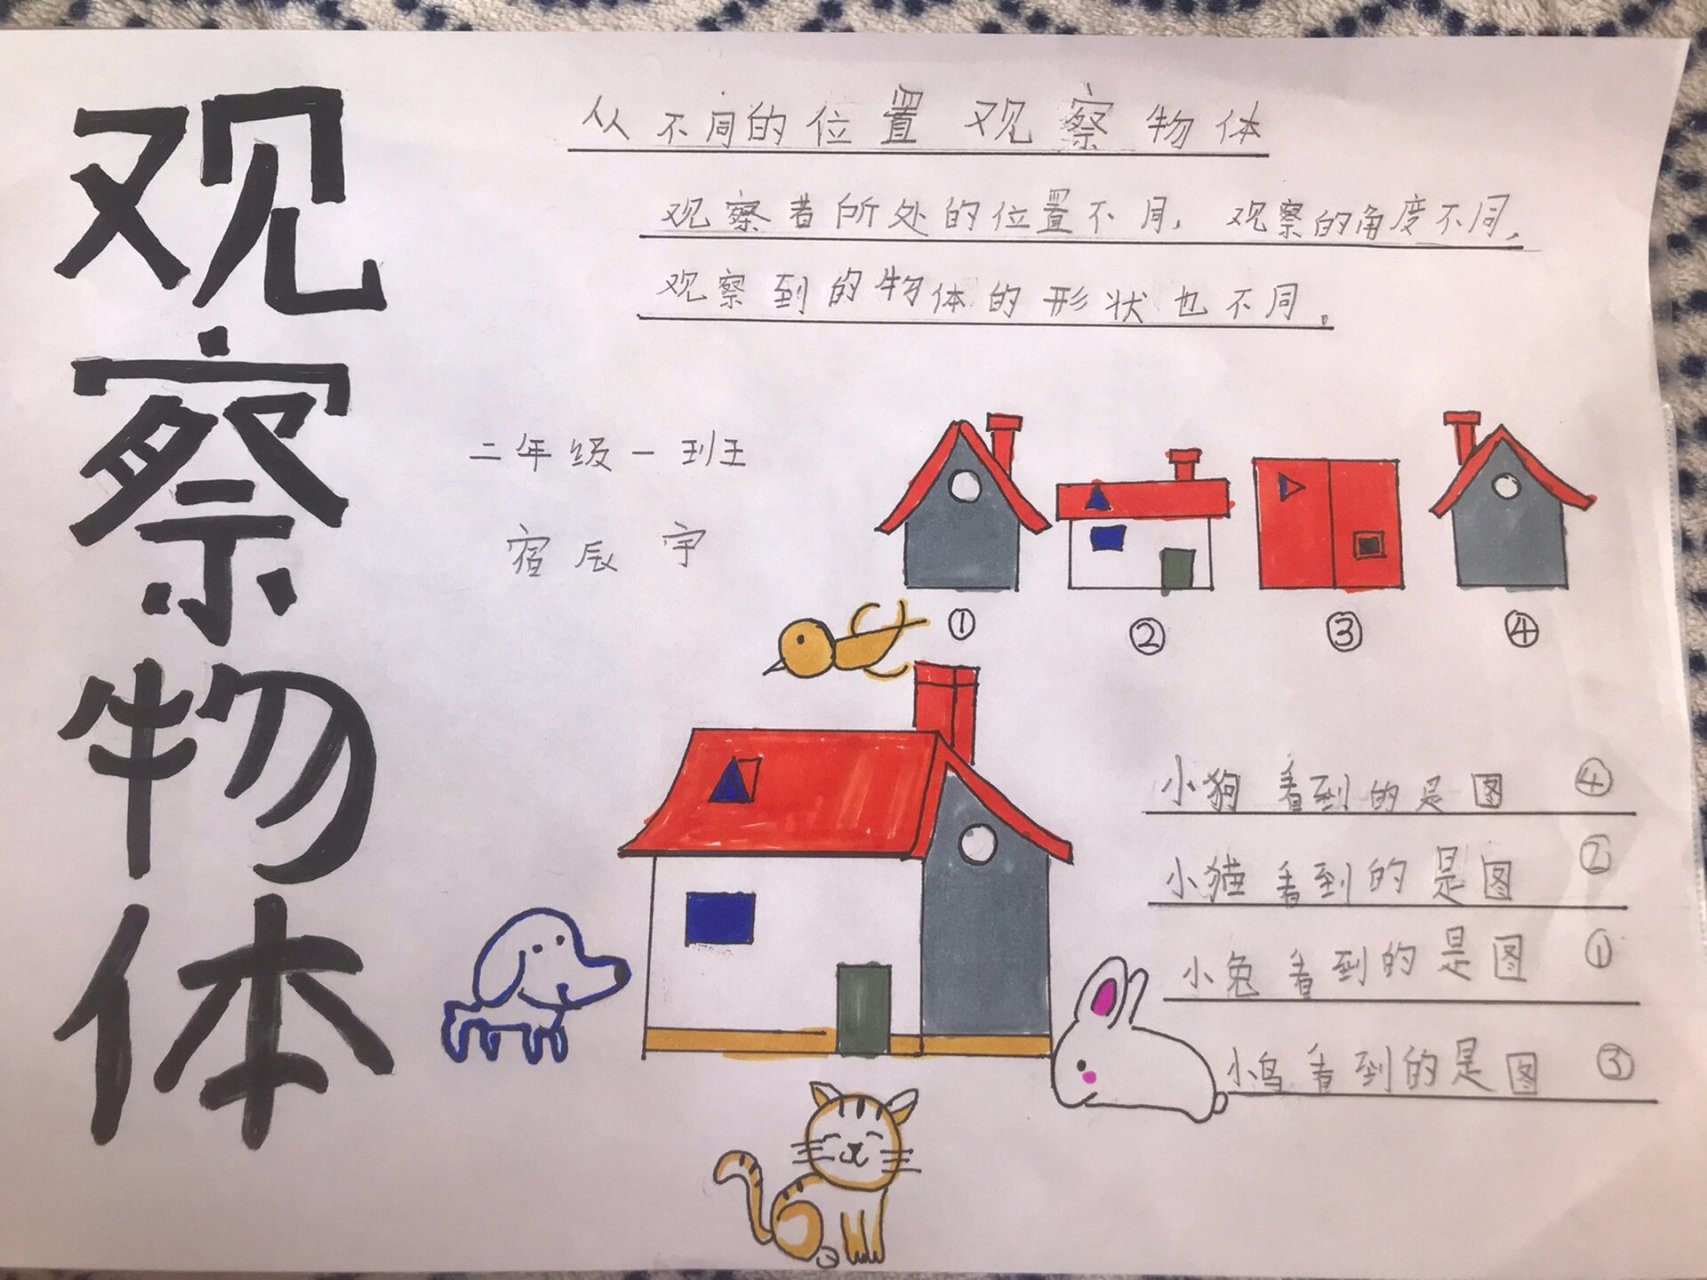 观察物体
从不同的位置观察物体
观察者所处的位置不同，观察的角度不同，
观察到的物体的形状也不同。
二年级一班
宿辰宇
① ② ③ ④
小狗看到的是图 ④
小猫看到的是图 ②
小兔看到的是图 ①
小鸟看到的是图 ③